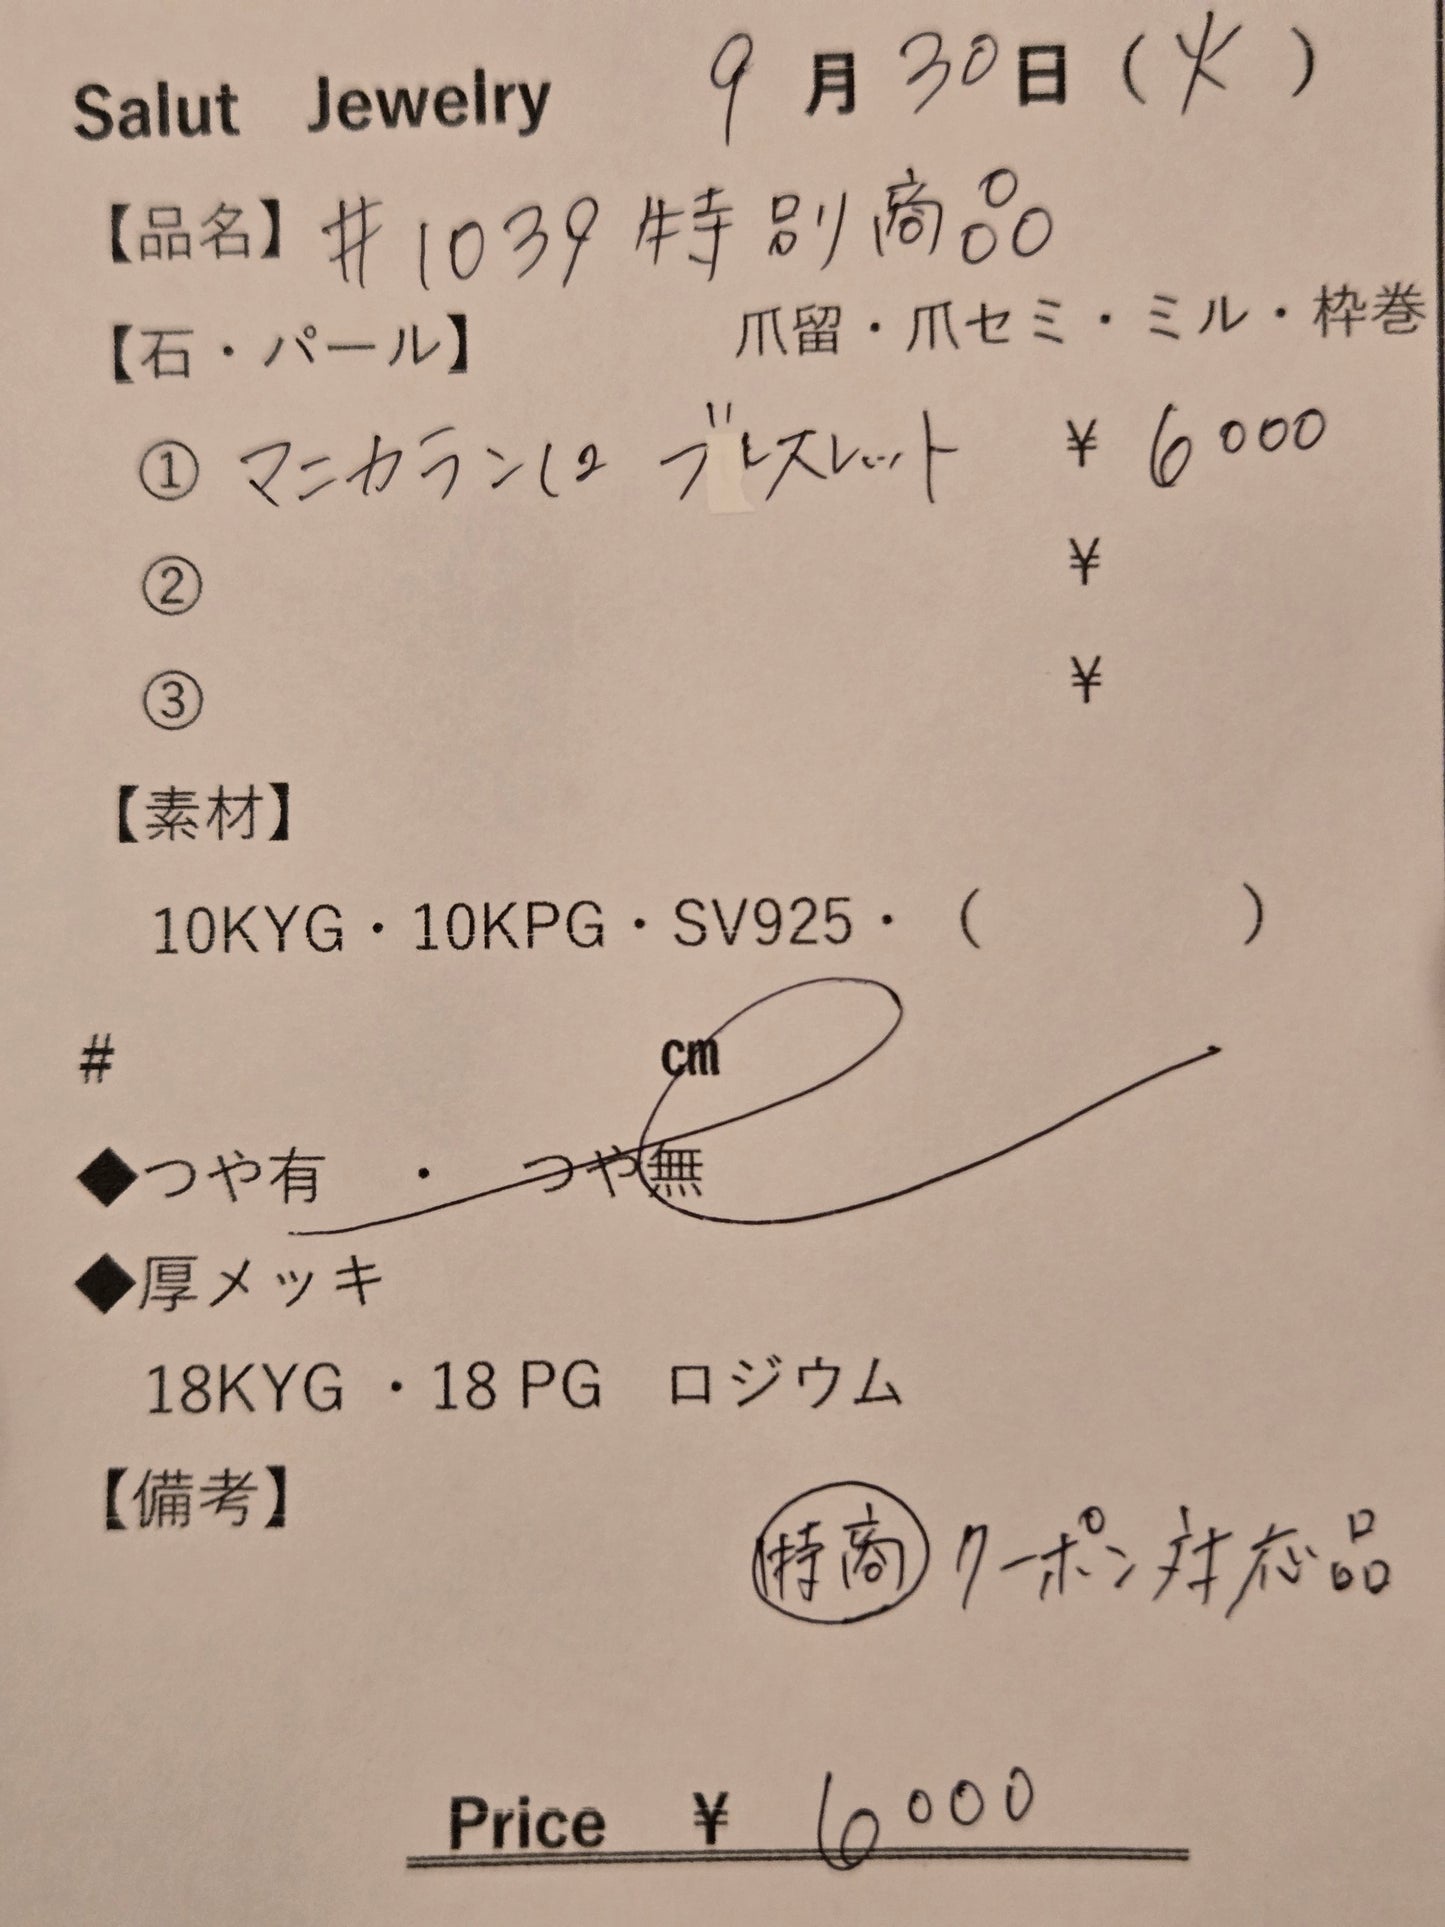 Salut Jewelry 9月30日(火)
【品名】#1039特別商品
【石・パール】 爪留・爪セミ・ミル・枠巻
① マニカラン12 ブレスレット ¥6000
② ¥
③ ¥
【素材】
10KYG・10KPG・SV925・( )
# cm
◆つや有 ・ つや無
◆厚メッキ
18KYG ・18 PG ロジウム
【備考】
特商 クーポン対応品
Price ¥ 6000